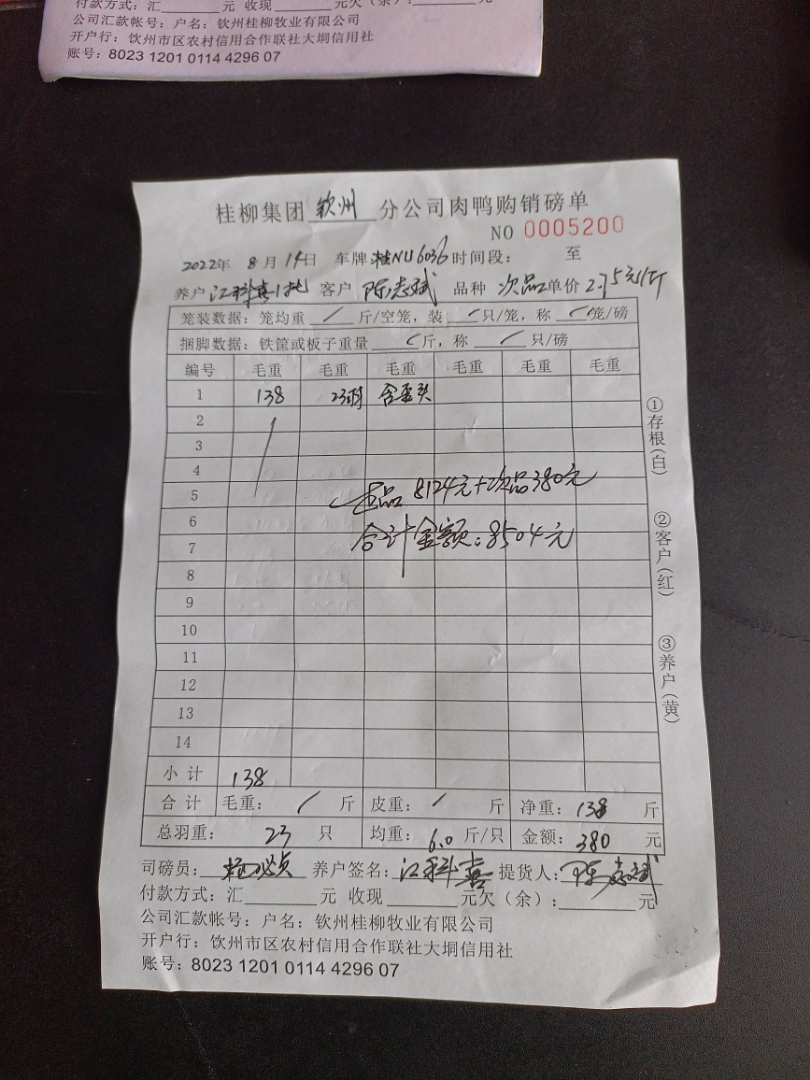 付款方式：汇 元 收现 元欠（余）： 元
公司汇款帐号：户名：钦州桂柳牧业有限公司
开户行：钦州市区农村信用合作联社大垌信用社
账号：8023 1201 0114 4296 07
桂柳集团 钦州 分公司肉鸭购销磅单
NO 0005200
2022年 8月14日 车牌：桂NU6036 时间段： 至
养户 江科喜 客户 陈志斌 品种 次品 单价 2.75元/斤
笼装数据：笼均重 / 斤/空笼，装 / 只/笼，称 / 笼/磅
捆脚数据：铁筐或板子重量 / 斤，称 / 只/磅
编号 毛重 毛重 毛重 毛重 毛重 毛重
1 138 23羽
2
3
4
5 正品 8124元+次品380元
6
7 合计金额：8504元
8
9
10
11
12
13
14
小计 138
合计 毛重： / 斤 皮重： / 斤 净重：138 斤
总羽重： 23 只 均重：6.0 斤/只 金额：380 元
司磅员： 养户签名：江科喜 提货人：陈志斌
付款方式：汇 元 收现 元欠（余）： 元
公司汇款帐号：户名：钦州桂柳牧业有限公司
开户行：钦州市区农村信用合作联社大垌信用社
账号：8023 1201 0114 4296 07
①存根（白）
②客户（红）
③养户（黄）